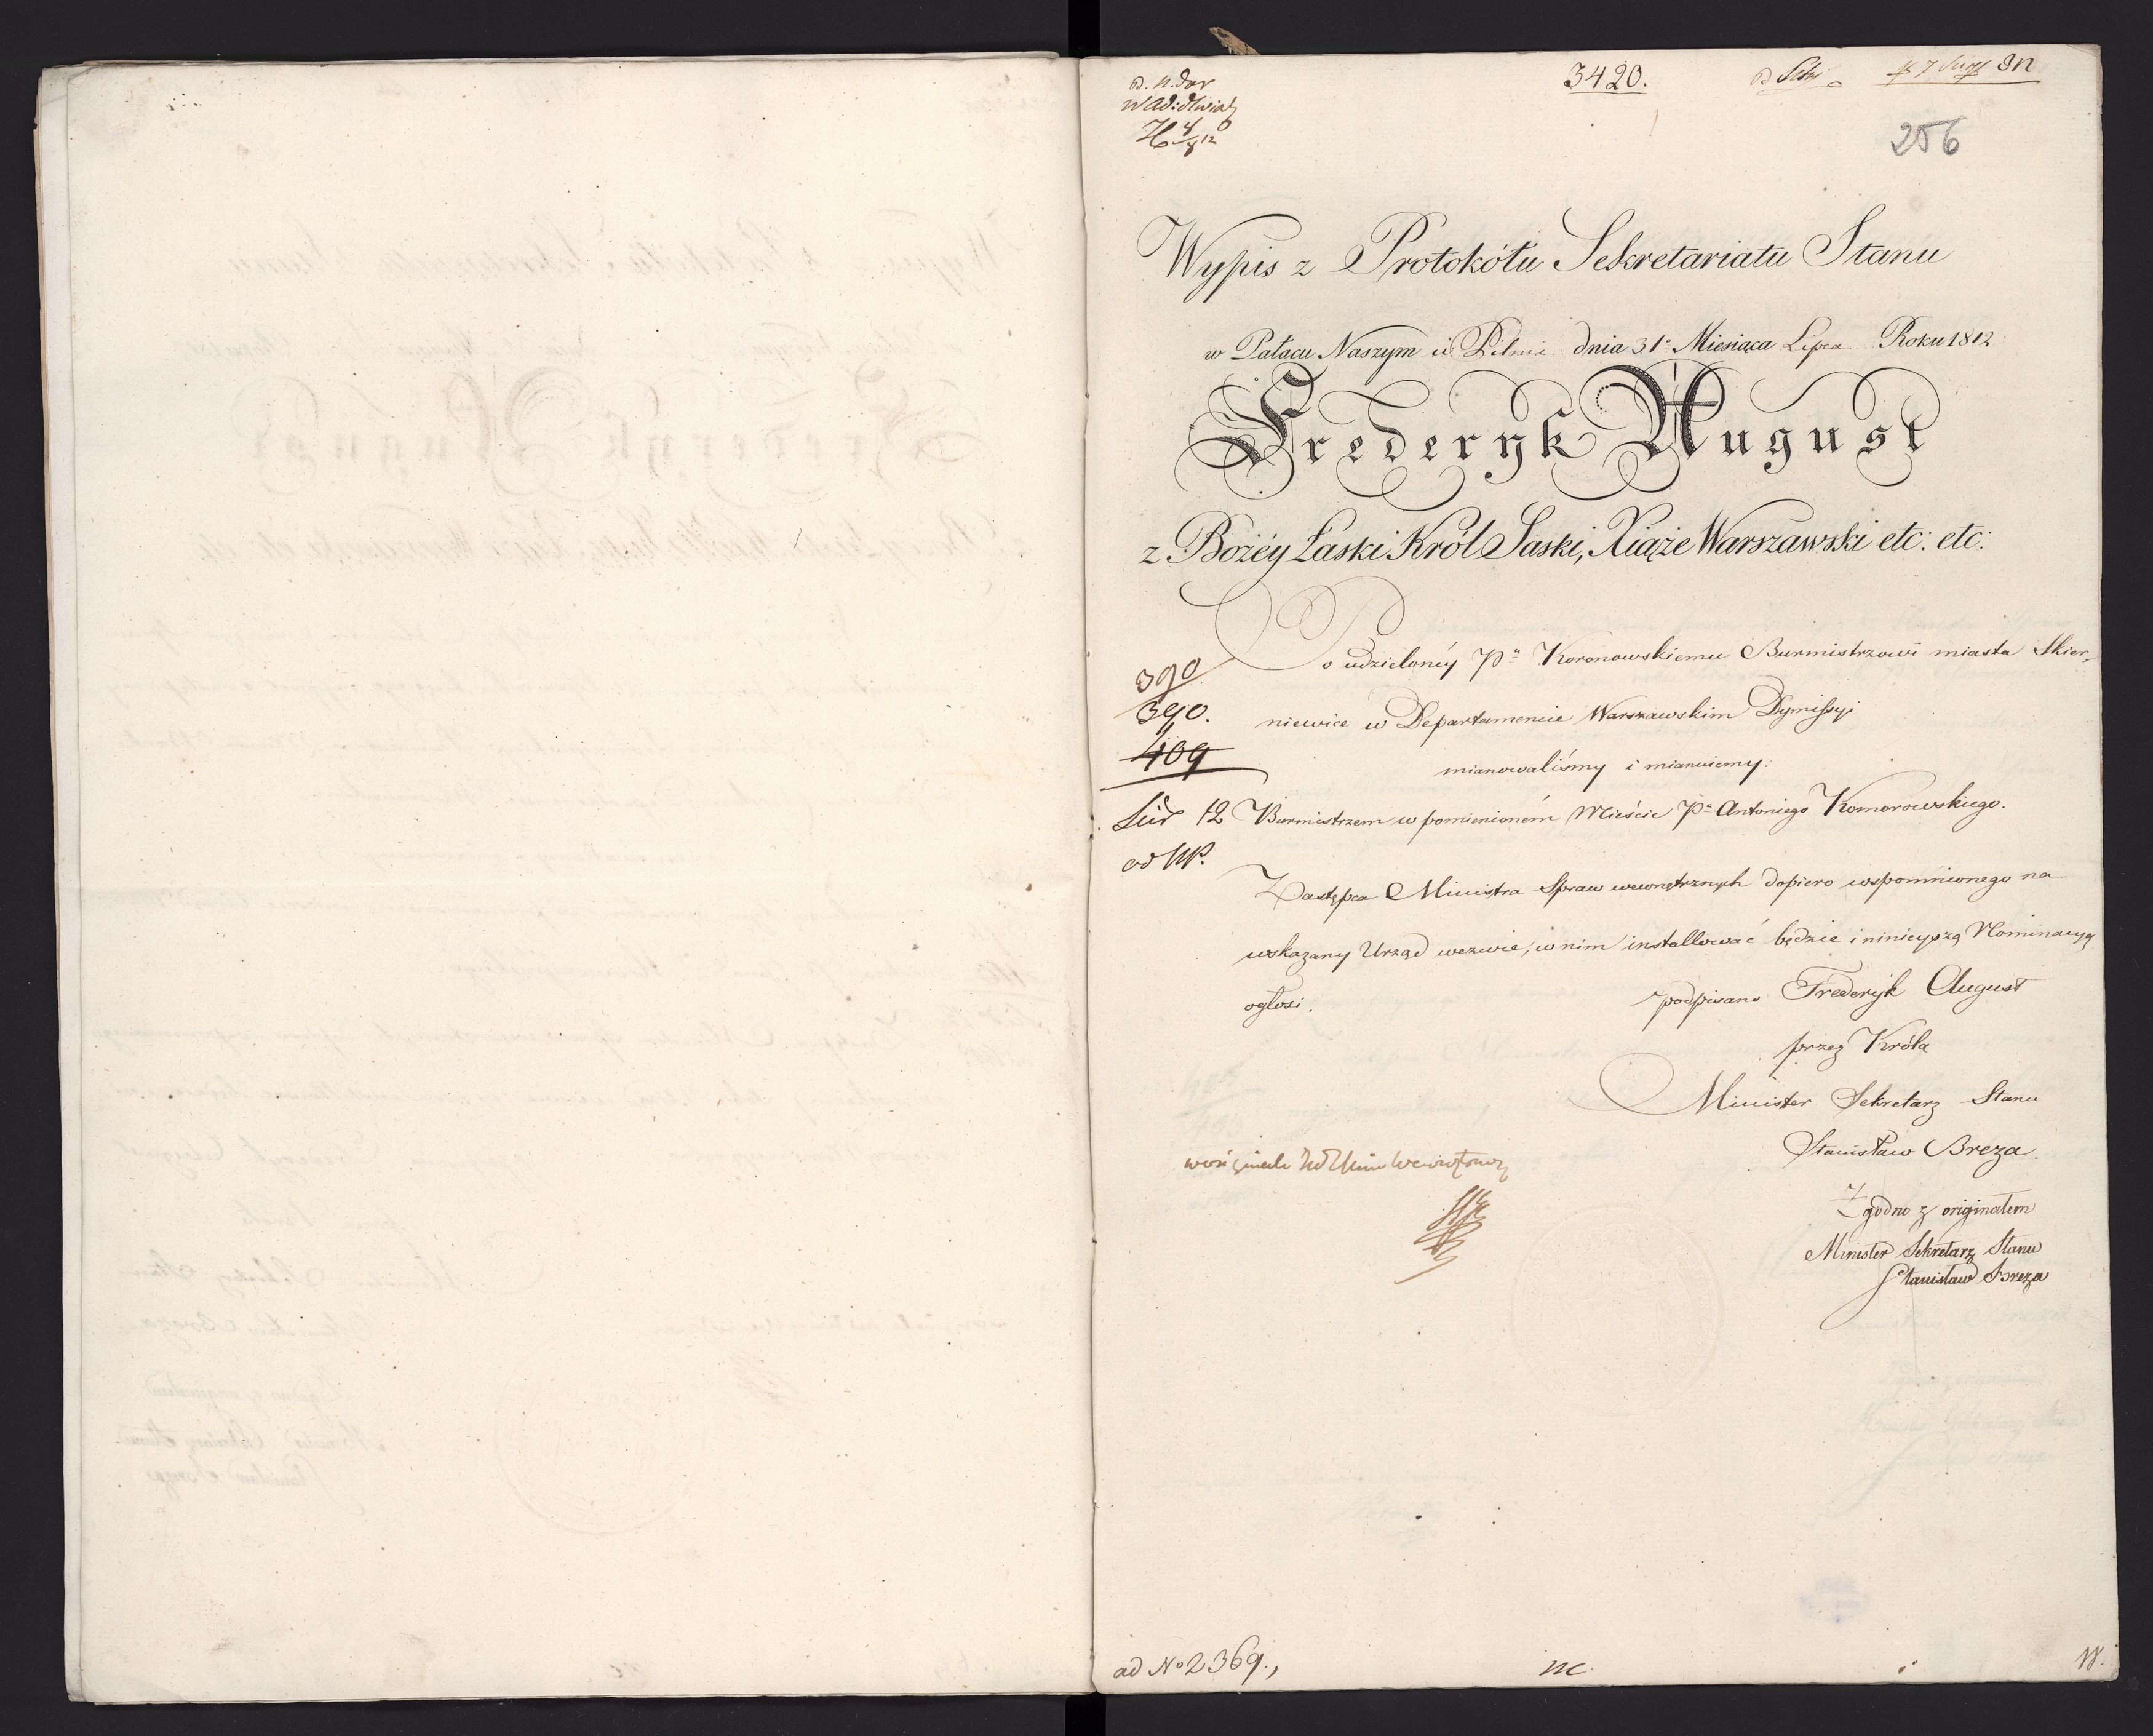 3420.
256
Wypis z Protokółu Sekretariatu Stanu
w Pałacu Naszym w Pilnic dnia 31º Miesiąca Lipca Roku 1812
Frederyk August
z Bożéy Łaski Król Saski, Xiąże Warszawski etc: etc:
Po udzielonéy Pu Koronowskiemu Burmistrzowi miasta Skier-
niewice w Departamencie Warszawskim Dymissyi
mianowaliśmy i mianuiemy.
Burmistrzem w pomienioném Mieście Pa Antoniego Komorowskiego.
390
390.
409
12
Zastępca Ministra Spraw wewnętrznych dopiero wspomnionego na
wskazany Urząd wezwie, w nim installować będzie i ninieyszą Nominacyą
ogłosi.
podpisano Frederyk August
przez Króla
Minister Sekretarz Stanu
Stanisław Breza.
Zgodno z originałem
Minister Sekretarz Stanu
Stanisław Breza
ad Nº 2369.,